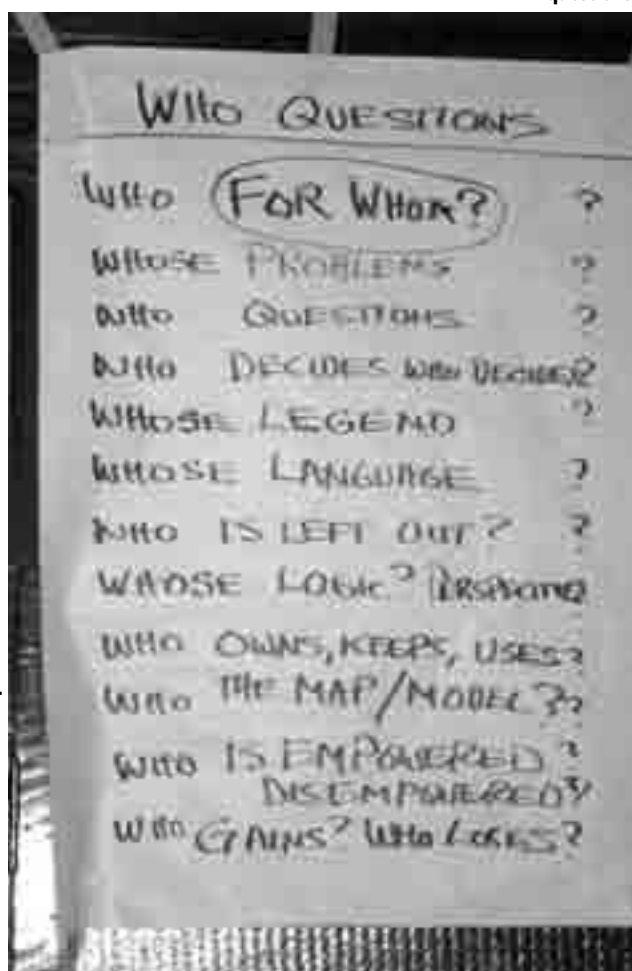 WHO QUESTIONS
WHO FOR WHOM? ?
WHOSE PROBLEMS ?
WHO QUESTIONS ?
WHO DECIDES WHO DECIDES?
WHOSE LEGEND ?
WHOSE LANGUAGE ?
WHO IS LEFT OUT? ?
WHOSE LOGIC?
WHO OWNS, KEEPS, USES?
WHO THE MAP/MODEL??
WHO IS EMPOWERED ?
DISEMPOWERED?
WHO GAINS? WHO LOSES?